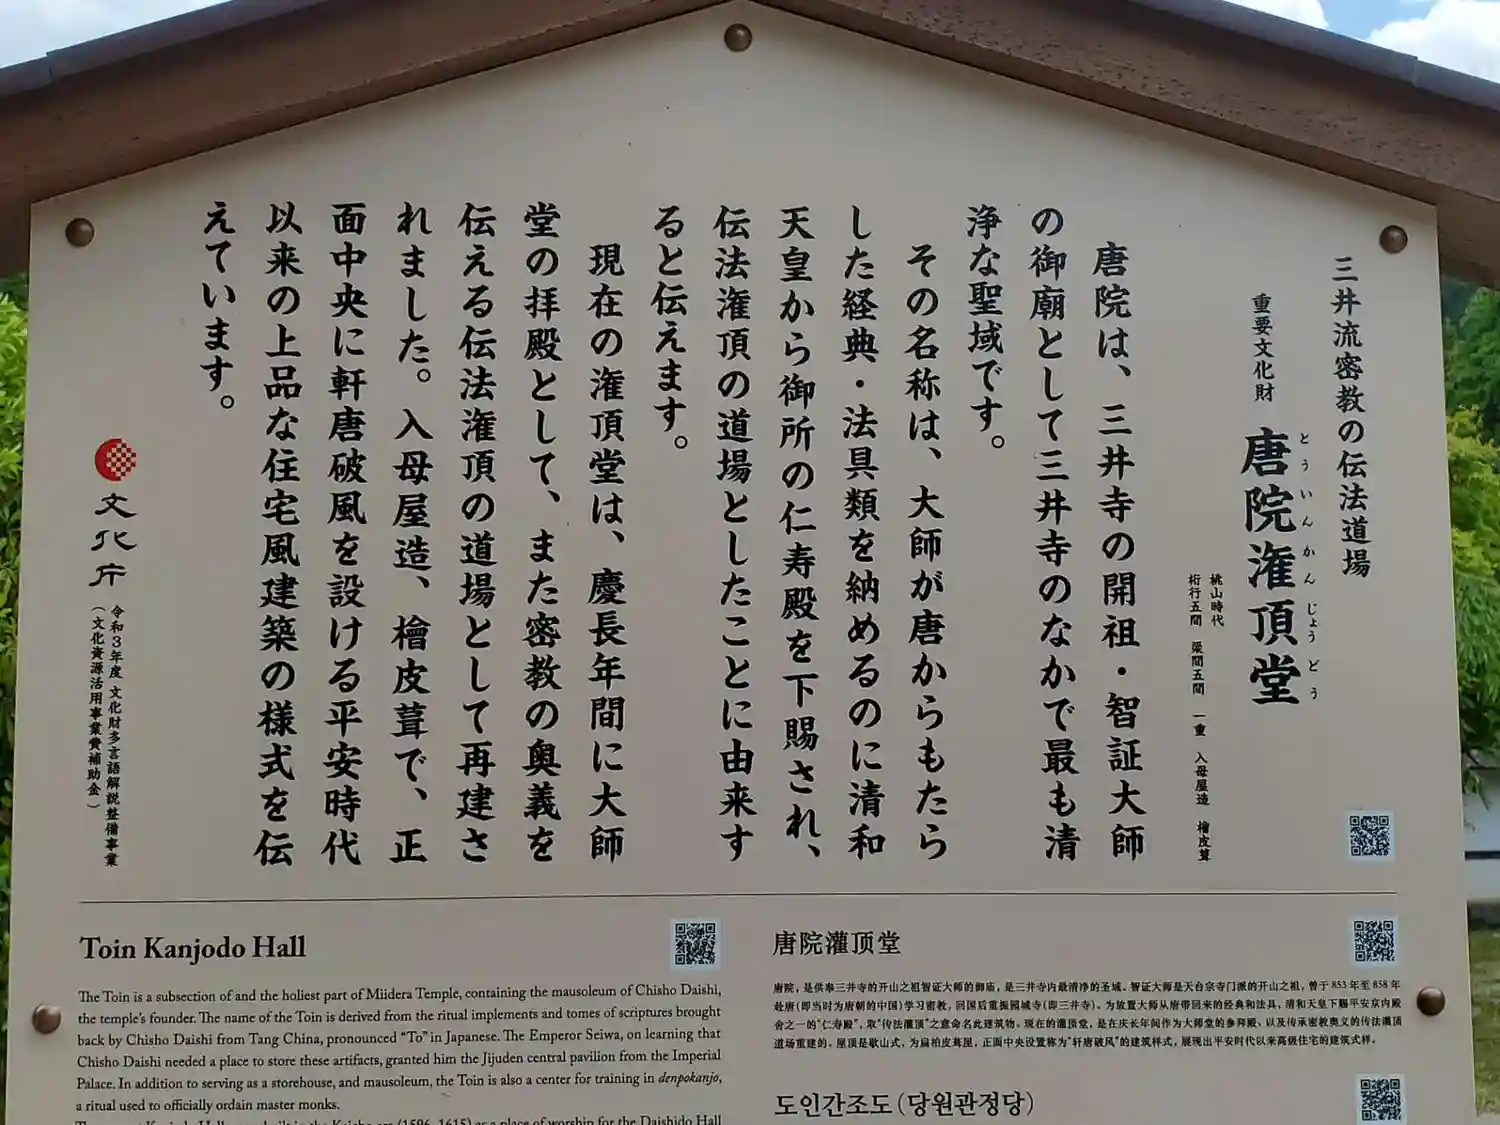 三井流密教の伝法道場
重要文化財 唐院潅頂堂
とういんかんじょうどう
桃山時代
桁行五間 梁間五間 一重 入母屋造 檜皮葺
唐院は、三井寺の開祖・智証大師
の御廟として三井寺のなかで最も清
浄な聖域です。
その名称は、大師が唐からもたら
した経典・法具類を納めるのに清和
天皇から御所の仁寿殿を下賜され、
伝法潅頂の道場としたことに由来す
ると伝えます。
現在の潅頂堂は、慶長年間に大師
堂の拝殿として、また密教の奥義を
伝える伝法潅頂の道場として再建さ
れました。入母屋造、檜皮葺で、正
面中央に軒唐破風を設ける平安時代
以来の上品な住宅風建築の様式を伝
えています。
文化庁
令和3年度 文化財多言語解説整備事業
（文化資源活用事業費補助金）
Toin Kanjodo Hall
The Toin is a subsection of and the holiest part of Miidera Temple, containing the mausoleum of Chisho Daishi,
the temple's founder. The name of the Toin is derived from the ritual implements and tomes of scriptures brought
back by Chisho Daishi from Tang China, pronounced “To” in Japanese. The Emperor Seiwa, on learning that
Chisho Daishi needed a place to store these artifacts, granted him the Jijuden central pavilion from the Imperial
Palace. In addition to serving as a storehouse, and mausoleum, the Toin is also a center for training in denpokanjo,
a ritual used to officially ordain master monks.
built in the Keicho era (1596–1615) as a place of worship for the Daishido Hall
唐院灌顶堂
唐院，是供奉三井寺的开山之祖智证大师的御庙，是三井寺内最清净的圣域。智证大师是天台宗寺门派的开山之祖，曾于853年至858年
赴唐（即当时为唐朝的中国）学习密教，回国后重振园城寺（即三井寺）。为放置大师从唐带回来的经典和法具，清和天皇下赐平安京内殿
舍之一的“仁寿殿”，取“传法灌顶”之意命名此建筑物。现在的灌顶堂，是在庆长年间作为大师堂的参拜殿、以及传承密教奥义的传法灌顶
道场重建的。屋顶是歇山式，为扁柏皮葺屋，正面中央设置称为“轩唐破风”的建筑样式，展现出平安时代以来高级住宅的建筑式样。
도인간조도(당원관정당)